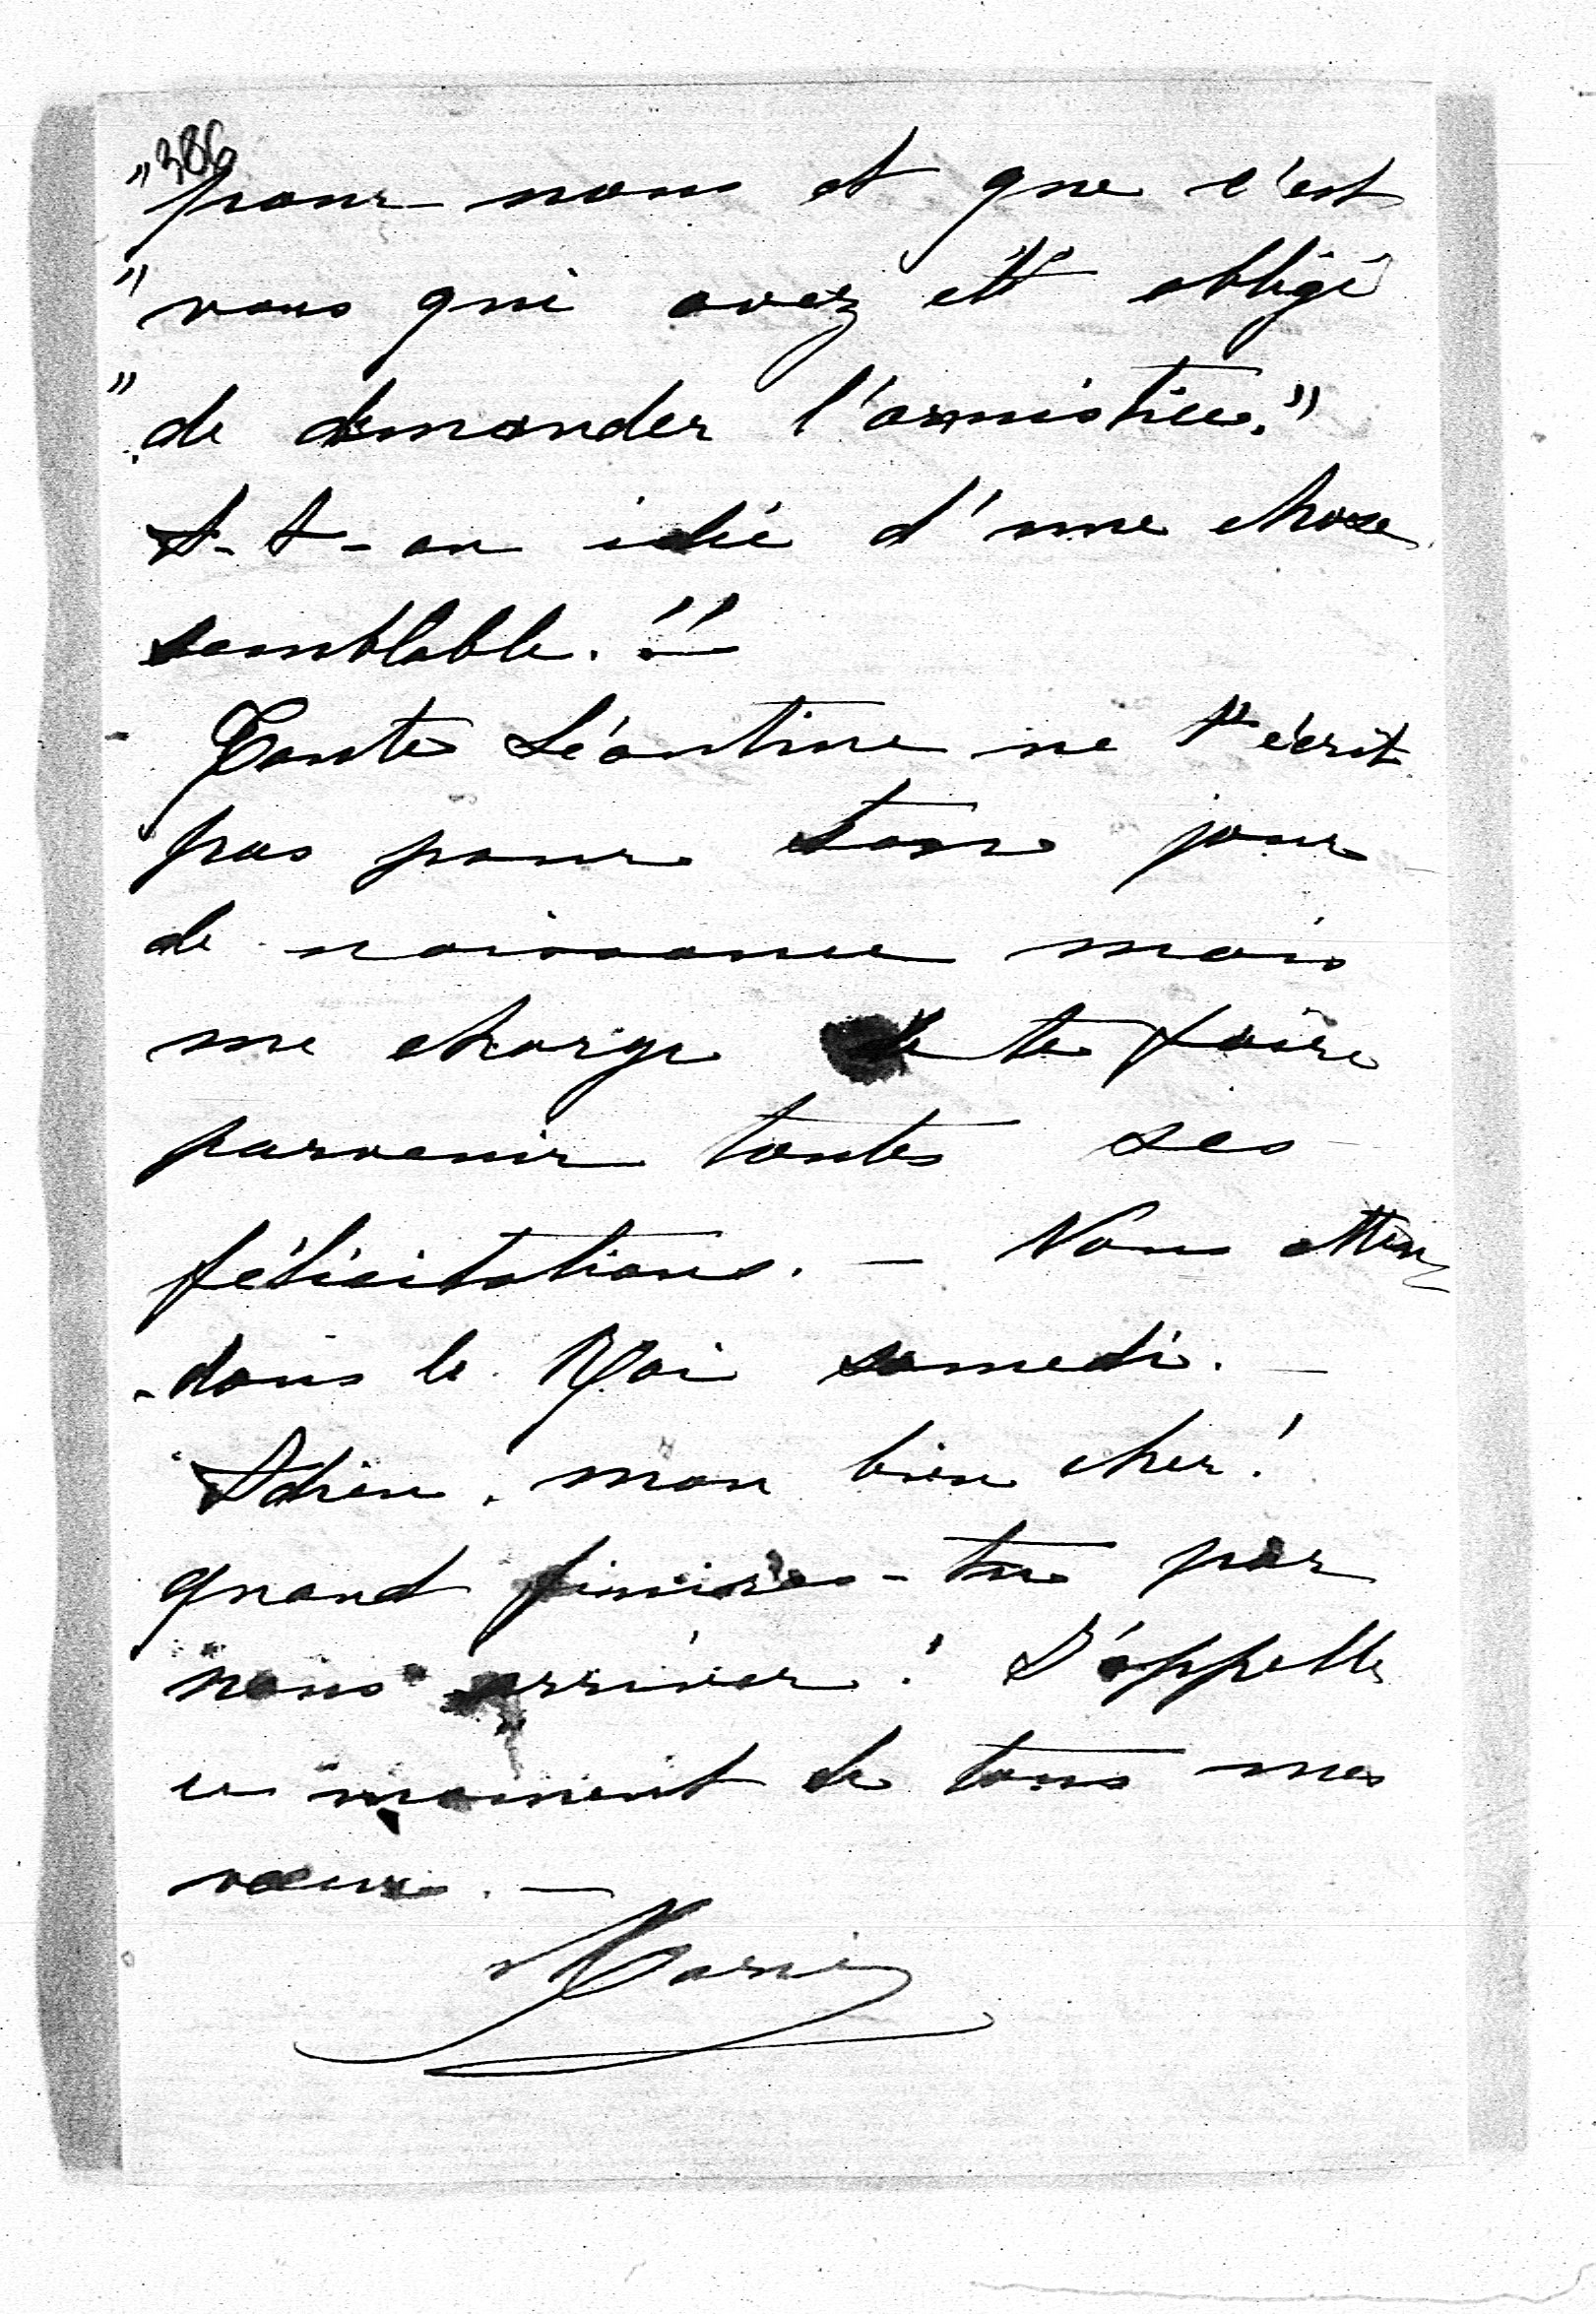 386
" pour nous et que c'est
" vous qui avez été obligé
" de demander l'armistice."
A-t-on idée d'une chose
semblable. !!
Tante Léontine ne t'écrit
pas pour ton jour
de naissance mais
me charge de te faire
parvenir toutes ses
félicitations. — Nous atten
-dons le Roi samedi. —
Adieu, mon bien cher!
quand finiras-tu par
nous arriver! J'appelle
ce moment de tous mes
vœux. —
Marie